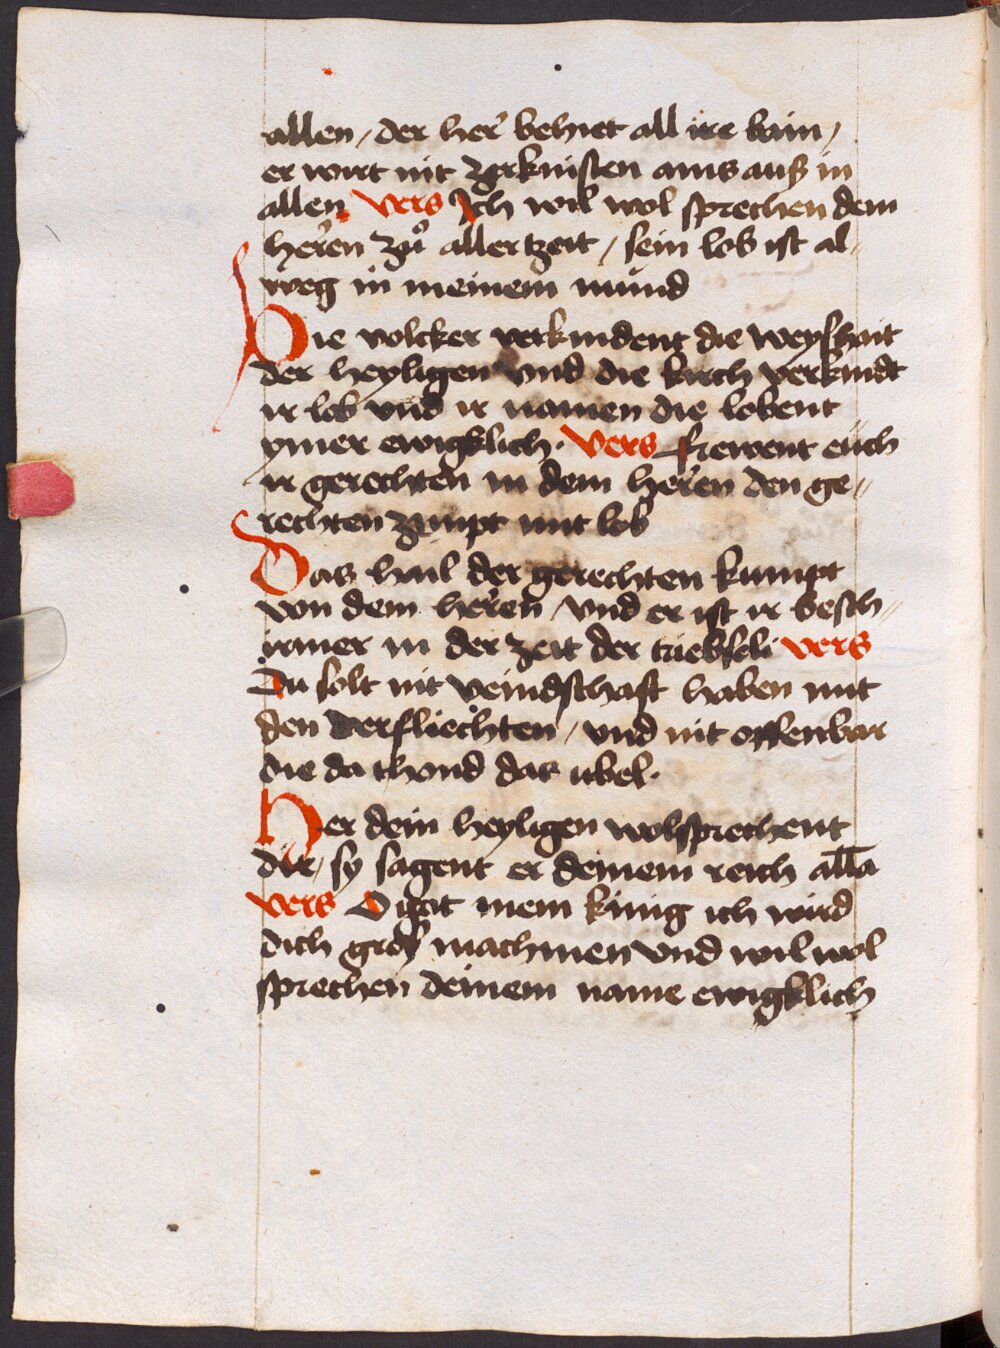 allen / der her behiet all ire bain /
er wirt nit zerknisten ains auß in
allen vers Ich wil wol sprechen dem
heren zů aller tzeit / sein lob ist al-
weg in meinem mund
Die volcker verkindent die weyshait
der heyligen vnd die kirch verkindt
ir lob vnd ir namen die lobent
ymer ewigklich. Vers Frewent euch
ir gerechten in dem heren den ge-
rechten zimpt mit lob
Das hail der gerechten kumpt
von dem heren / vnd er ist ir besch-
irmer in der zeit der triebseli vers
Du solt nit veindschaft haben mit
den verfliechten / vnd nit offenbar
die da thond das ubel.
Her dein heyligen wolsprechent
dir / sy sagent er deinem reich alla
vers O got mein king ich wird
dich groß machmen vnd wil wol
sprechen deinem name ewigklich